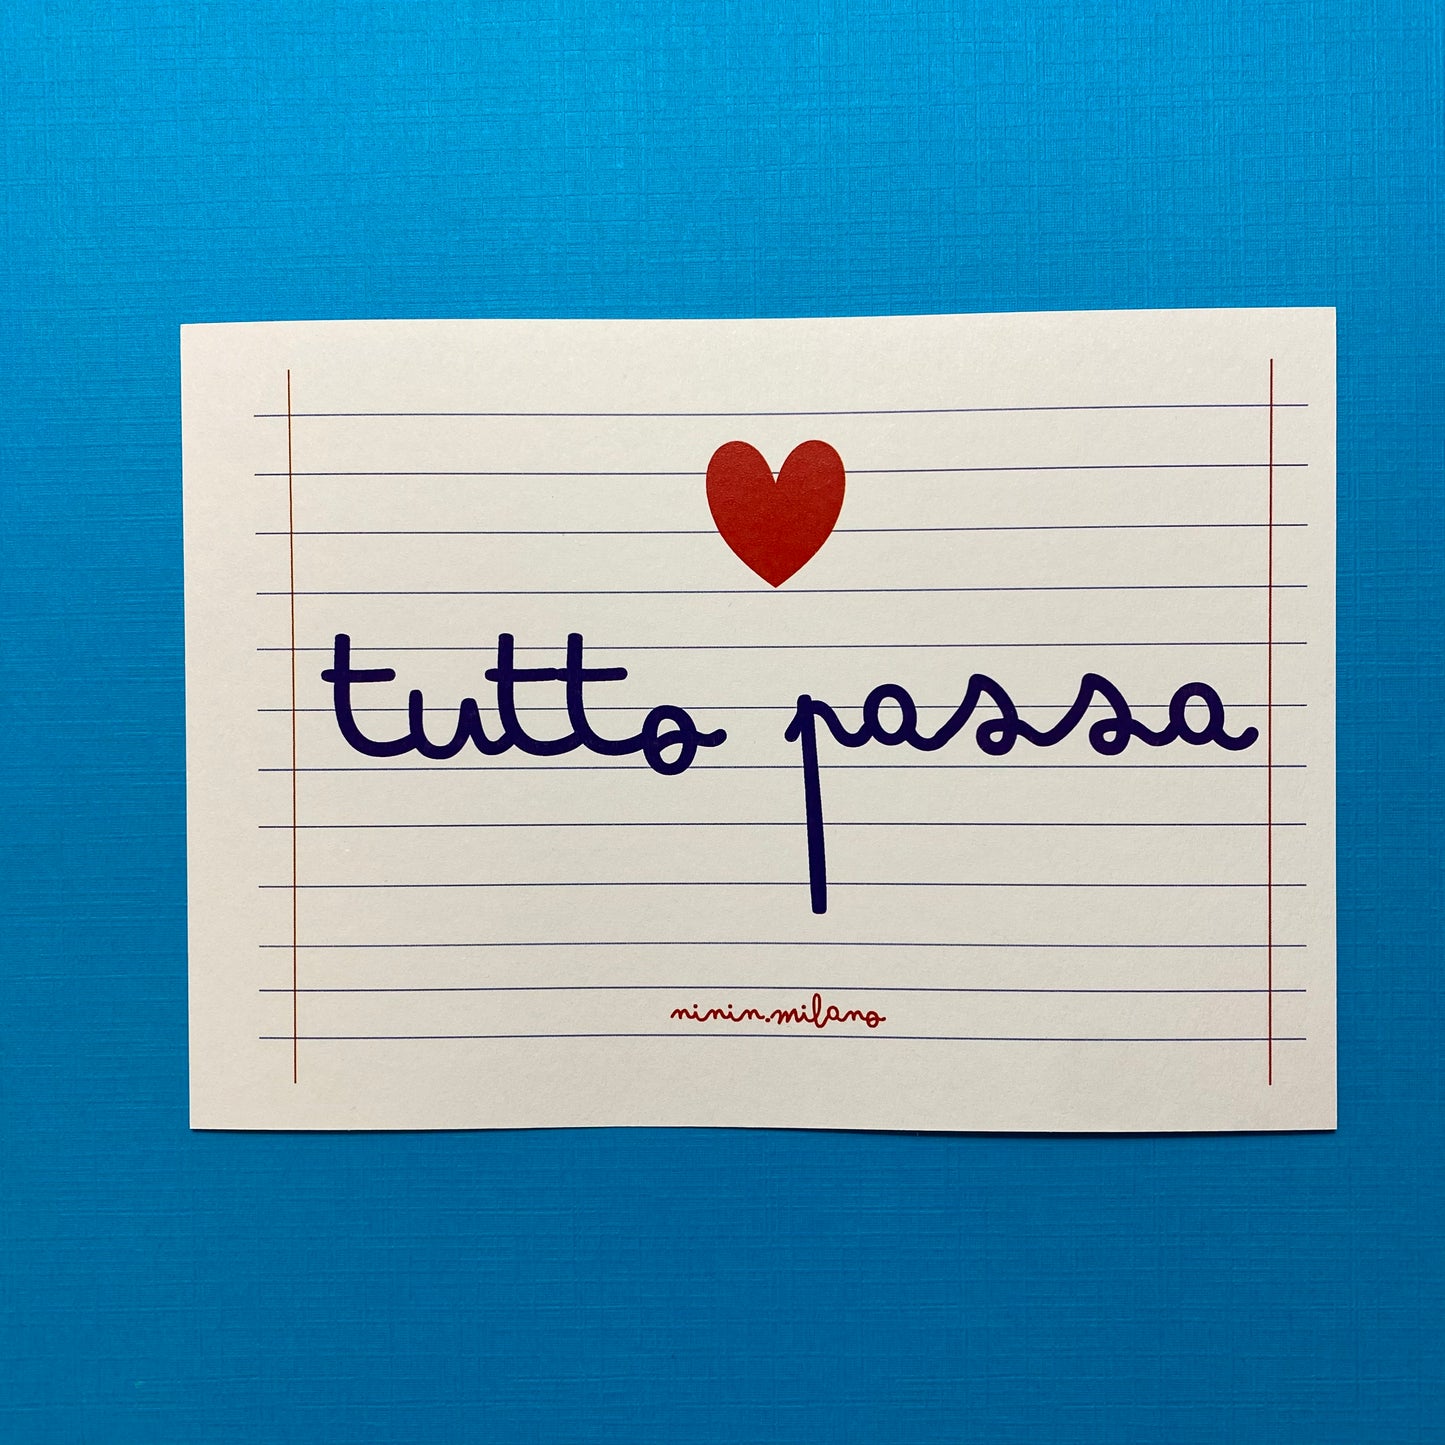 tutto passa
ninin.milano